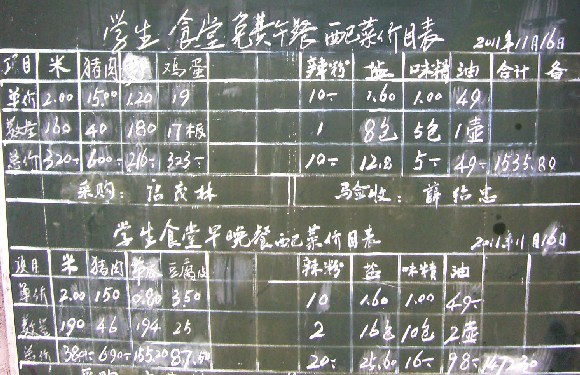 学生食堂免费午餐配菜价目表 2011年11月16日
项目 米 猪肉 鸡蛋 辣粉 盐 味精 油 合计 备
单价 2.00 15.00 1.20 19 10- 1.60 1.00 49
数量 160 40 180 17板 1 8包 5包 1壶
总价 320- 600- 216- 323- 10- 12.8 5- 49- 1535.80
采购: 验收:
学生食堂早晚餐配菜价目表 2011年11月16日
项目 米 猪肉 豆腐皮 辣粉 盐 味精 油
单价 2.00 150 0.80 3.50 10 1.60 1.00 49-
数量 190 46 194 25 2 16包 10包 2壶
总价 380- 690- 155.20 87.50 20- 25.60 16- 98-